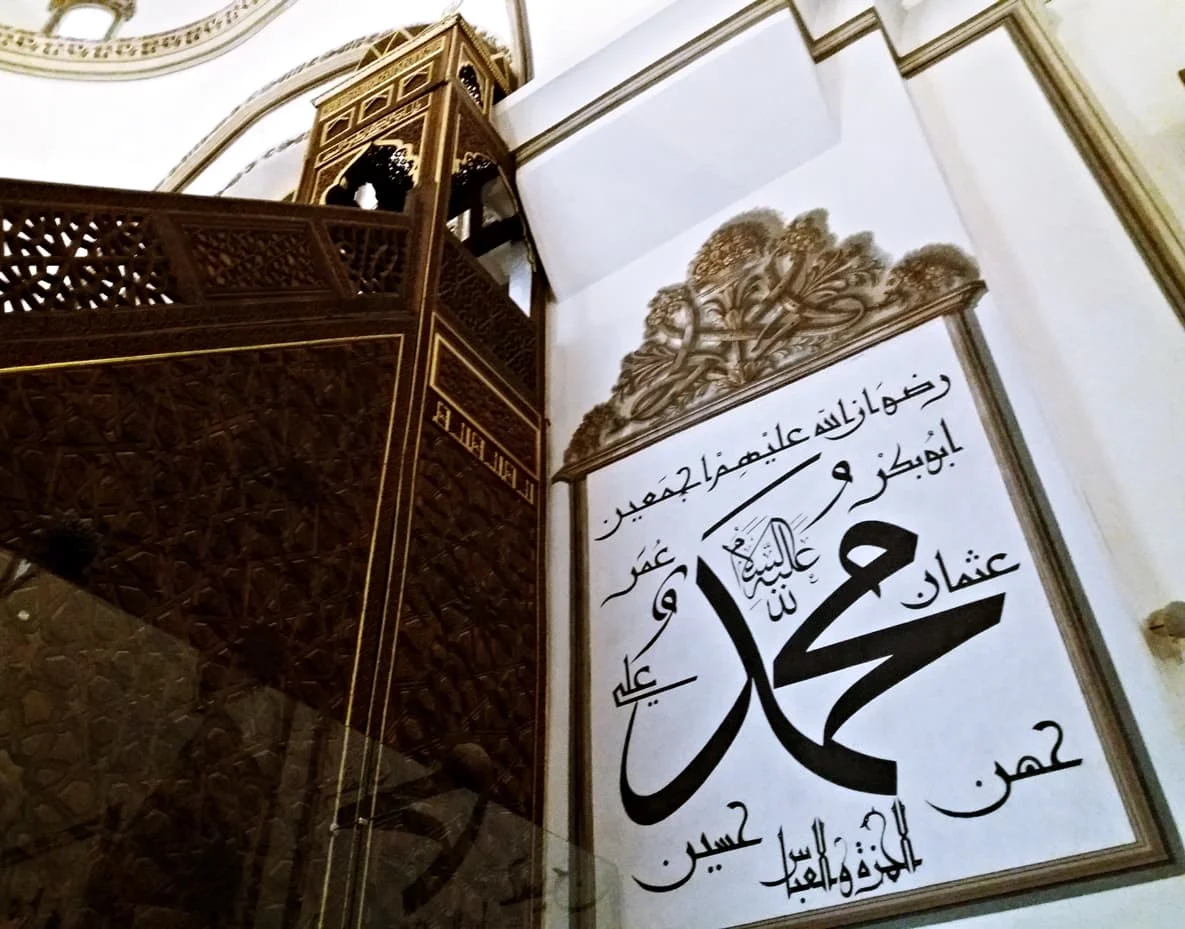 رضوان الله عليهم اجمعين
ابوبكر
و
عمر
عثمان
و
علي
محمد
عليه السلام
حسن
حسين
الحمزة و العباس